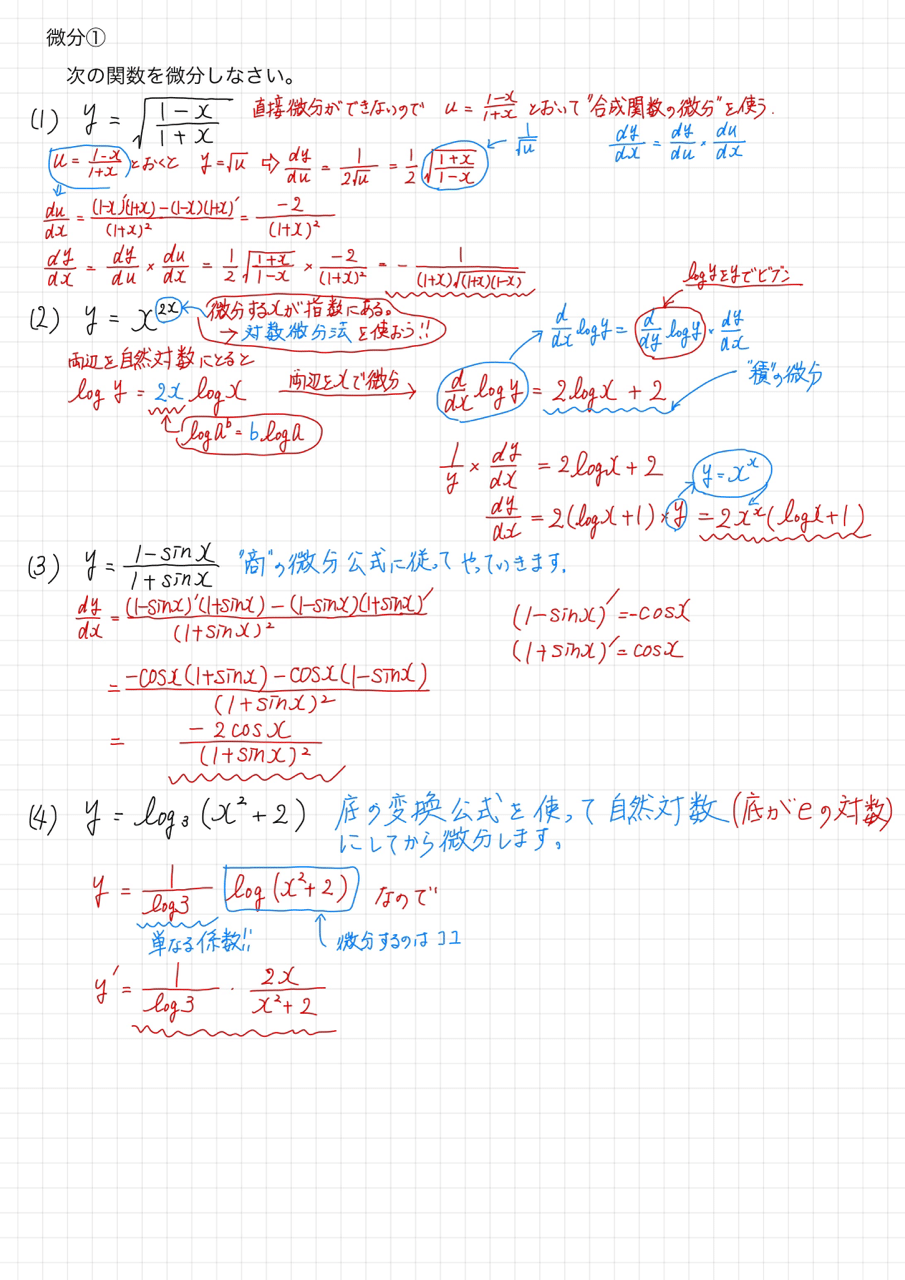 微分①
次の関数を微分しなさい。
(1) y = √((1-x)/(1+x)) 直接微分ができないので u = (1-x)/(1+x) とおいて"合成関数の微分"を使う.
u = (1-x)/(1+x) とおくと y = √u ⇨ dy/du = 1/(2√u) = 1/2 √((1+x)/(1-x)) ← 1/√u dy/dx = dy/du × du/dx
du/dx = ((1-x)'(1+x) - (1-x)(1+x)')/(1+x)² = -2/(1+x)²
dy/dx = dy/du × du/dx = 1/2 √((1+x)/(1-x)) × -2/(1+x)² = - 1/((1+x)√((1+x)(1-x)))
log yをyでビブン
(2) y = x^(2x) 微分するxが指数にある。
→ 対数微分法を使おう!!
d/dx log y = d/dy log y × dy/dx
両辺を自然対数にとると
log y = 2x log x 両辺をxで微分 → d/dx log y = 2 log x + 2 "積"の微分
log a^b = b log a
1/y × dy/dx = 2 log x + 2 y = x^x
dy/dx = 2(log x + 1) × y = 2x^x (log x + 1)
(3) y = (1 - sin x)/(1 + sin x) "商"の微分公式に従ってやっていきます.
dy/dx = ((1-sin x)'(1+sin x) - (1-sin x)(1+sin x)')/(1+sin x)² (1-sin x)' = -cos x
(1+sin x)' = cos x
= (-cos x(1+sin x) - cos x(1-sin x))/(1+sin x)²
= -2cos x/(1+sin x)²
(4) y = log₃(x²+2) 底の変換公式を使って自然対数(底がeの対数)
にしてから微分します。
y = 1/log3 log(x²+2) なので
単なる係数!! 微分するのはココ
y' = 1/log3 · 2x/(x²+2)